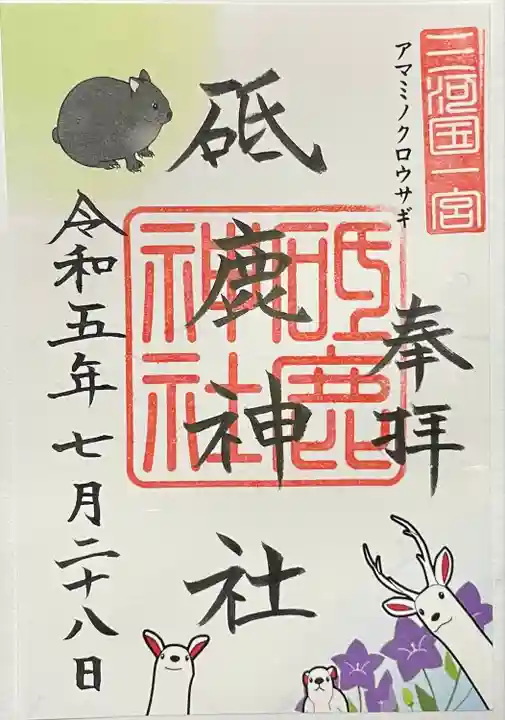 三河国一宮
アマミノクロウサギ
奉拝
砥鹿神社
砥鹿神社
令和五年七月二十八日